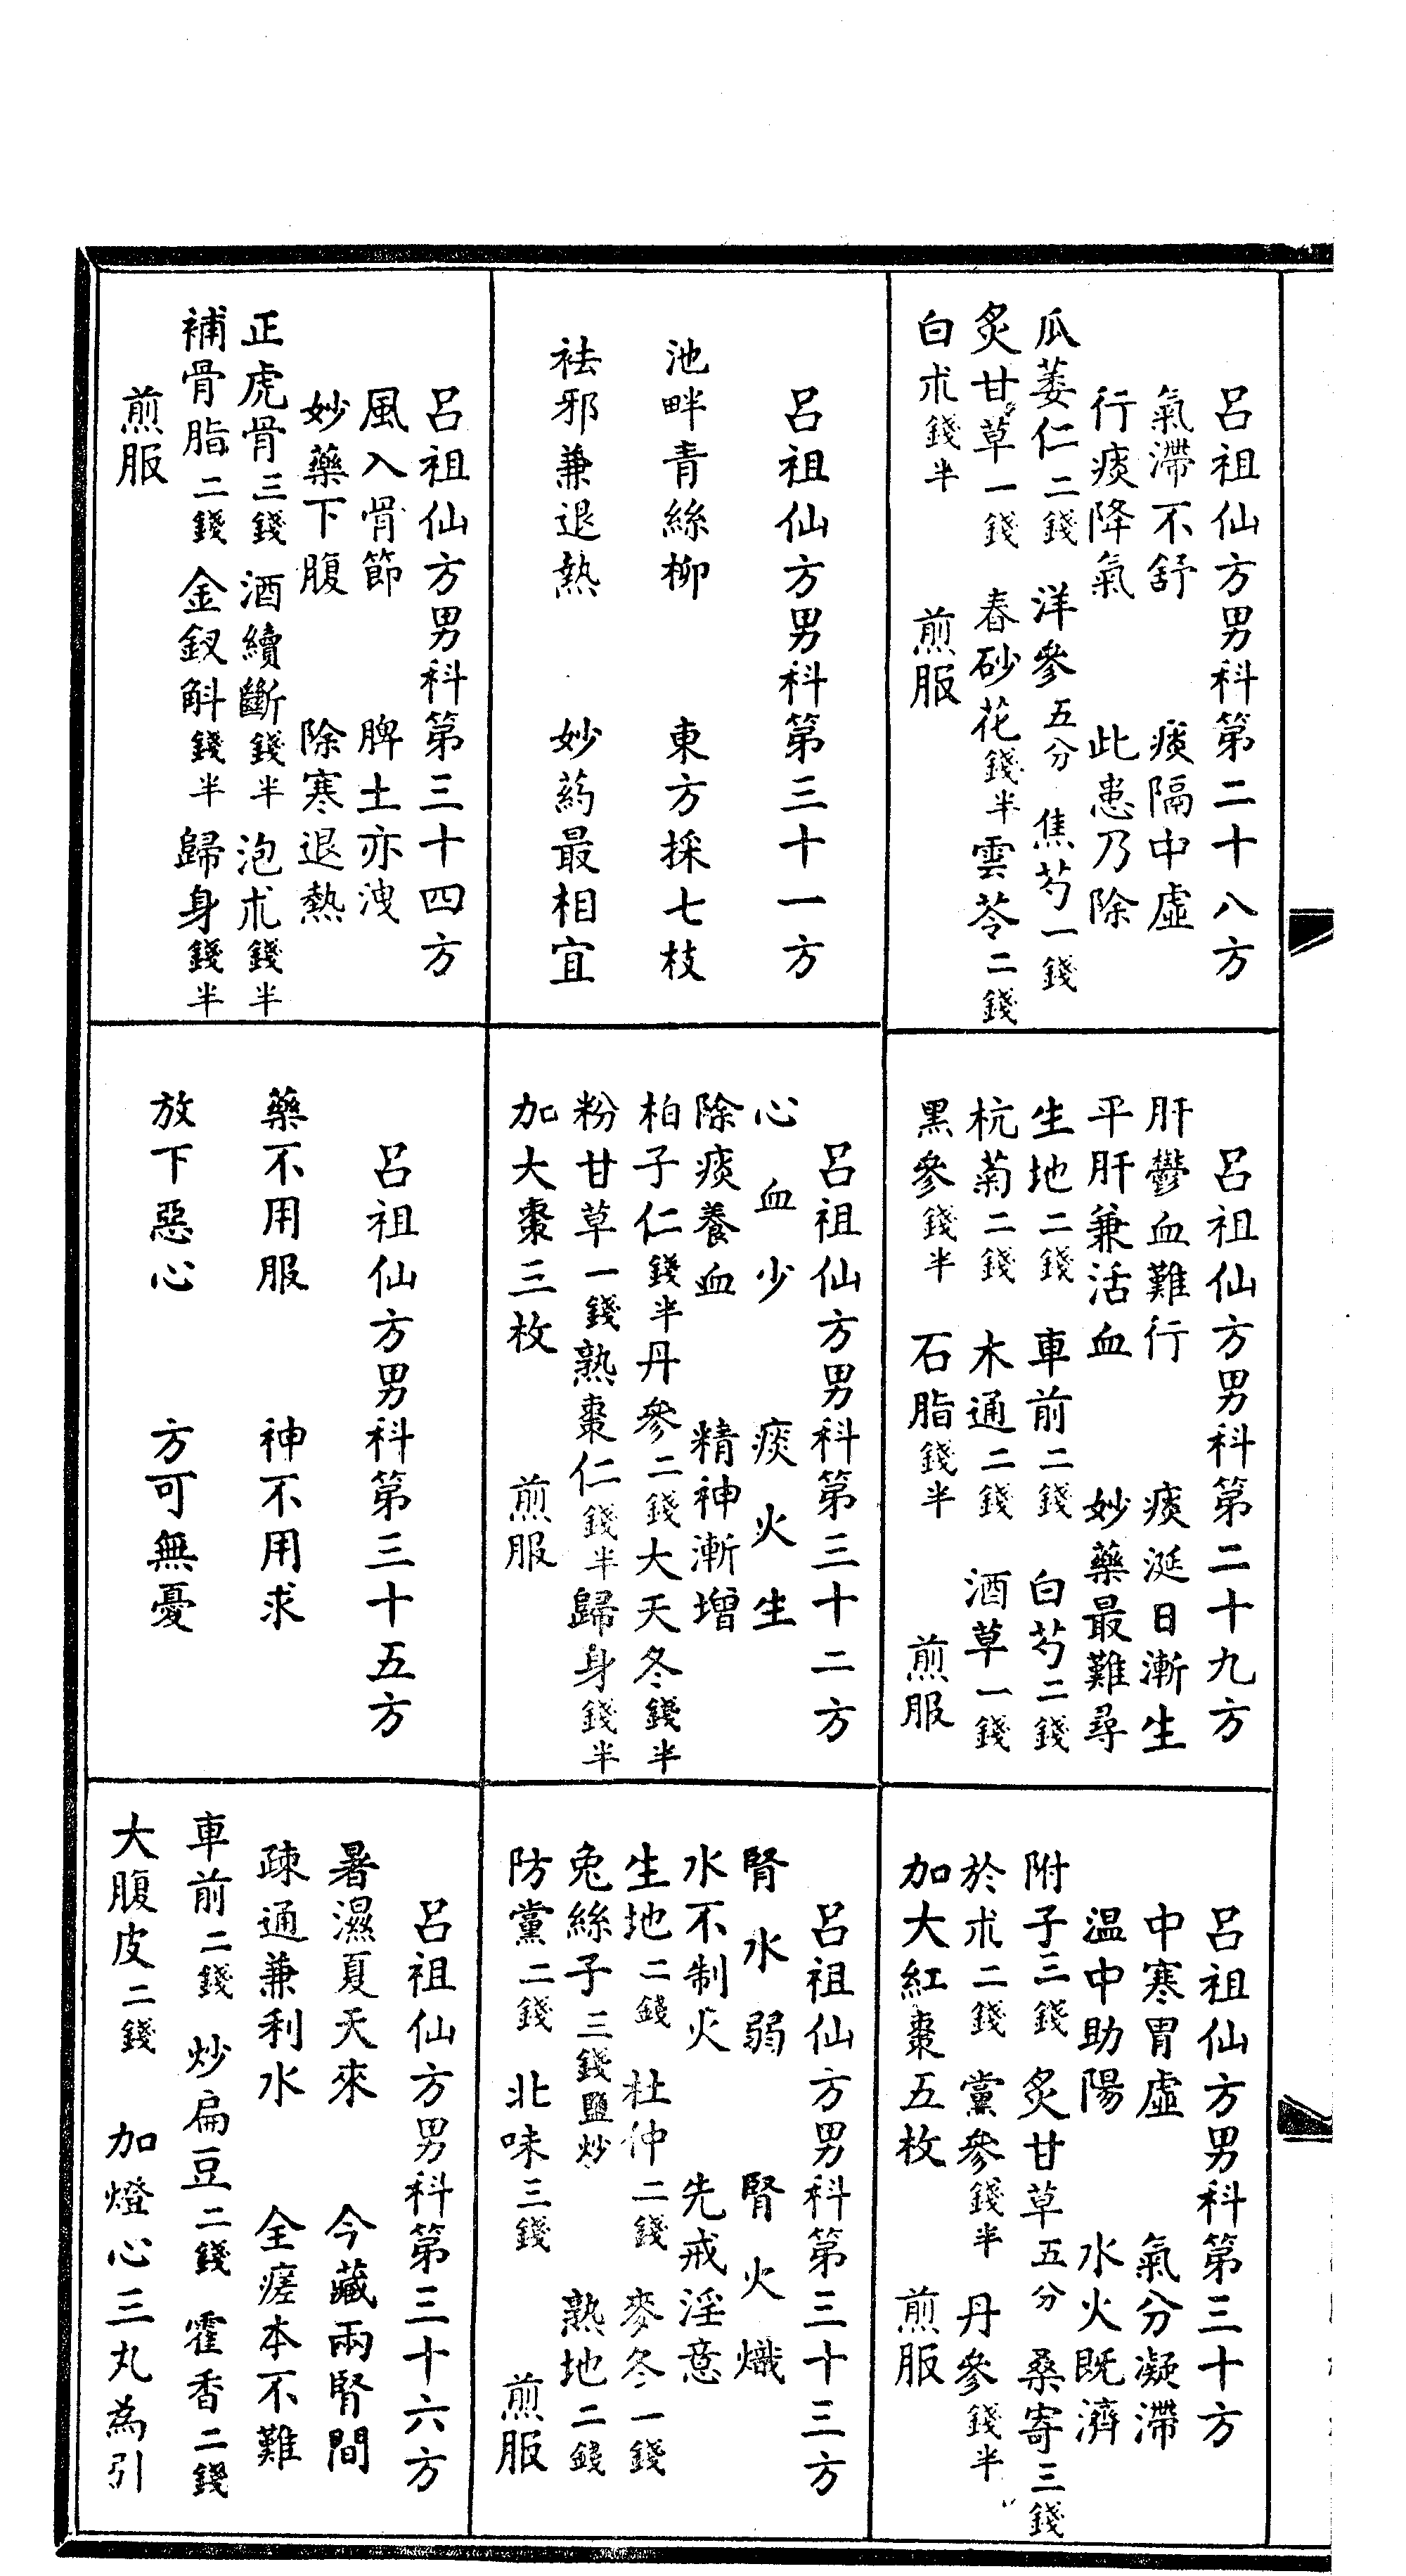 呂祖仙方男科第二十八方
氣滯不舒　痰隔中虛
行痰降氣　此患乃除
瓜蔞仁二錢　洋參五分　焦芍一錢
炙甘草一錢　春砂花錢半　雲苓二錢
白朮錢半　煎服
呂祖仙方男科第二十九方
肝鬱血難行　痰涎日漸生
平肝兼活血　妙藥最難尋
生地二錢　車前二錢　白芍二錢
杭菊二錢　木通二錢　酒草一錢
黑參錢半　石脂錢半　煎服
呂祖仙方男科第三十方
中寒胃虛　氣分凝滯
温中助陽　水火既濟
附子三錢　炙甘草五分　桑寄三錢
於朮二錢　黨參錢半　丹參錢半
加大紅棗五枚　煎服
呂祖仙方男科第三十一方
池畔青絲柳　東方採七枝
祛邪兼退熱　妙葯最相宜
呂祖仙方男科第三十二方
心血少　痰火生
除痰養血　精神漸增
柏子仁錢半　丹參二錢　大天冬錢半
粉甘草一錢　熟棗仁錢半　歸身錢半
加大棗三枚　煎服
呂祖仙方男科第三十三方
腎水弱　腎火熾
水不制火　先戒淫意
生地二錢　杜仲二錢　麥冬一錢
兔絲子三錢鹽炒　熟地二錢
防黨二錢　北味三錢　煎服
呂祖仙方男科第三十四方
風入骨節　脾土亦洩
妙藥下腹　除寒退熱
正虎骨三錢　酒續斷錢半　泡朮錢半
補骨脂二錢　金釵斛錢半　歸身錢半
煎服
呂祖仙方男科第三十五方
藥不用服　神不用求
放下惡心　方可無憂
呂祖仙方男科第三十六方
暑濕夏天來　今藏兩腎間
疎通兼利水　全瘥本不難
車前二錢　炒扁豆二錢　霍香二錢
大腹皮二錢　加燈心三丸為引